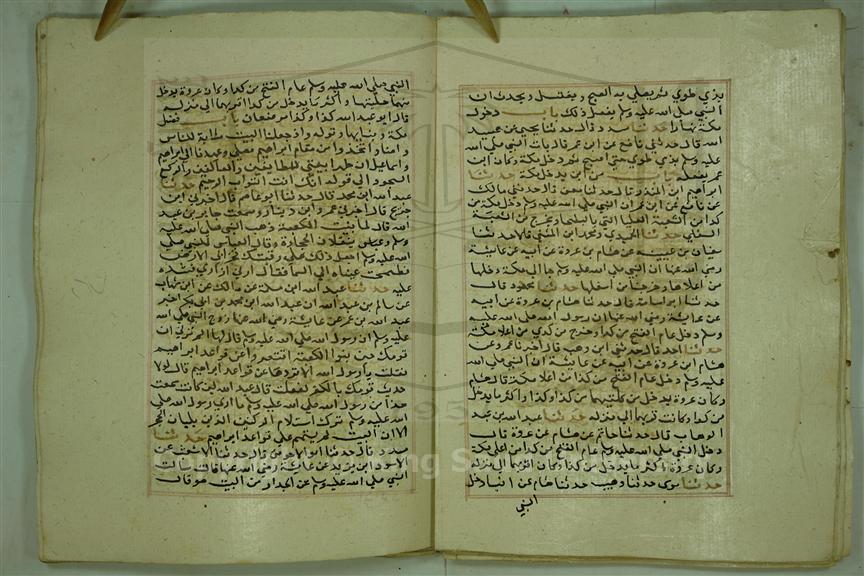 بذي طوي ثم يصلي به الصبح ويغتسل ويحدث ان
النبي صلى الله عليه وسلم يفعل ذلك باب دخول
مكة نهارا حدثنا مسدد قال حدثنا يحيى عن عبيد
الله قال حدثني نافع عن ابن عمر قال بات النبي صلى الله
عليه وسلم بذي طوي حتى اصبح ثم دخل مكة وكان ابن
عمر يفعله باب من اين يدخل مكة حدثنا
ابراهيم ابن المنذر قال حدثنا معن قال حدثني مالك
عن نافع عن ابن عمر ان النبي صلى الله عليه وسلم دخل مكة من
كدا من الثنية العليا التي بالبطحا وخرج من الثنية
السفلي حدثنا الحميدي ومحمد ابن المثنى قالا حدثنا
سفيان بن عيينة عن هشام بن عروة عن ابيه عن عائشة
رضي الله عنها ان النبي صلى الله عليه وسلم جا الى مكة دخلها
من اعلاها وخرج من اسفلها حدثنا محمود قال
حدثنا ابو اسامة قال حدثنا هشام بن عروة عن ابيه
عن عائشة رضي الله عنها ان رسول الله صلى الله عليه
وسلم دخل عام الفتح من كدا وخرج من كدي من اعلا مكة
حدثنا احمد قال حدثني ابن وهب قال اخبرنا عمرو عن
هشام ابن عروة عن ابيه عن عائشة ان النبي صلى الله
عليه وسلم دخل عام الفتح من كدا من اعلا مكة قال هشام
وكان عروة يدخل من كلتيهما من كدا وكدا واكثر ما يدخل
من كدا وكانت قربهما الى منزله حدثنا عبد الله بن عبد
الوهاب قال حدثنا حاتم عن هشام عن عروة قال
دخل النبي صلى الله عليه وسلم عام الفتح من كدا من اعلى مكة
وكان عروة اكثر ما يدخل من كدا وكان اقربهما الى منزله
حدثنا موسى حدثنا وهيب حدثنا هشام عن ابيه دخل
النبي
النبي صلى الله عليه وسلم عام الفتح من كدا وكان عروة يدخل
منهما كلتيهما واكثر ما يدخل من كدا اقربهما الى منزله
قال ابو عبد الله كدا وكدا موضعان باب فضل
مكة وبنيانها وقوله واذ جعلنا البيت مثابة للناس
وامنا واتخذوا من مقام ابراهيم مصلى وعهدنا الى ابراهيم
واسماعيل ان طهرا بيتي للطائفين والعاكفين والركع
السجود الى قوله انك انت التواب الرحيم حدثنا
عبد الله ابن محمد قال حدثنا ابو عاصم قال اخبرني ابن
جريج قال اخبرني عمرو ابن دينار وسمعت جابر بن عبد
الله قال لما بنيت الكعبة ذهب النبي صلى الله عليه
وسلم وعباس ينقلان الحجارة وقال العباس للنبي صلى
الله عليه وسلم اجعل ذلك على رقبتك فخر الى الارض
فطمحت عيناه الى السما فقال ارني ازاري فشده
عليه حدثنا عبد الله ابن مسلمة عن مالك عن ابن شهاب
عن سالم بن عبد الله ان عبد الله ابن محمد بن ابي بكر اخبر
عبد الله بن عمر عن عائشة رضي الله عنها زوج النبي صلى الله
عليه وسلم ان رسول الله صلى الله عليه وسلم قال لها الم تري ان
قومك حين بنوا الكعبة اقتصروا عن قواعد ابراهيم
فقلت يا رسول الله الا تردها عن قواعد ابراهيم قال لولا
حدث قومك بالكفر لفعلت قال عبد الله لين كانت سمعت
هذا من رسول الله صلى الله عليه وسلم ما اري رسول الله صلى
الله عليه وسلم ترك استلام الركنين الذين يليان الحجر
الا ان البيت لم يتمم على قواعد ابراهيم حدثنا
مسدد قال حدثنا ابو الاحوص قال حدثنا الاشوف عن
الاسود ابن يزيد عن عائشة رضي الله عنها قالت سالت
النبي صلى الله عليه وسلم عن الجدار من البيت هو قال